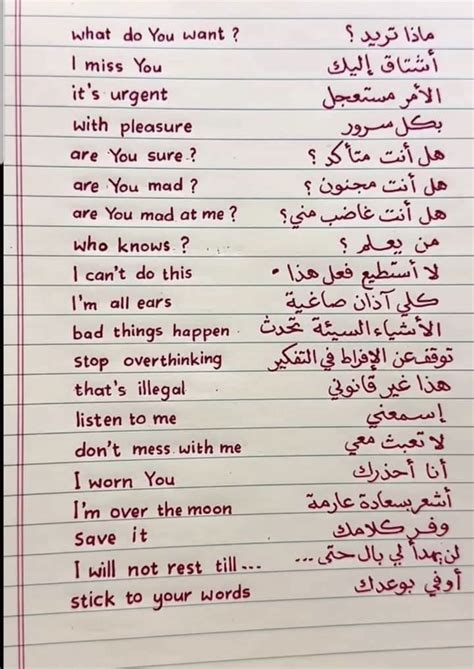 what do You want ? ماذا تريد ؟
I miss You أشتاق إليك
it's urgent الأمر مستعجل
with pleasure بكل سرور
are You sure ? هل أنت متأكد ؟
are You mad ? هل أنت مجنون ؟
are You mad at me ? هل أنت غاضب مني ؟
who knows ? من يعلم ؟
I can't do this لا أستطيع فعل هذا .
I'm all ears كلي آذان صاغية
bad things happen الأشياء السيئة تحدث
stop overthinking توقف عن الإفراط في التفكير
that's illegal هذا غير قانوني
listen to me إسمعني
don't mess with me لا تعبث معي
I worn You أنا أحذرك
I'm over the moon أشعر بسعادة عارمة
Save it وفر كلامك
I will not rest till --- لن يهدأ لي بال حتى ...
stick to your words أوفي بوعدك